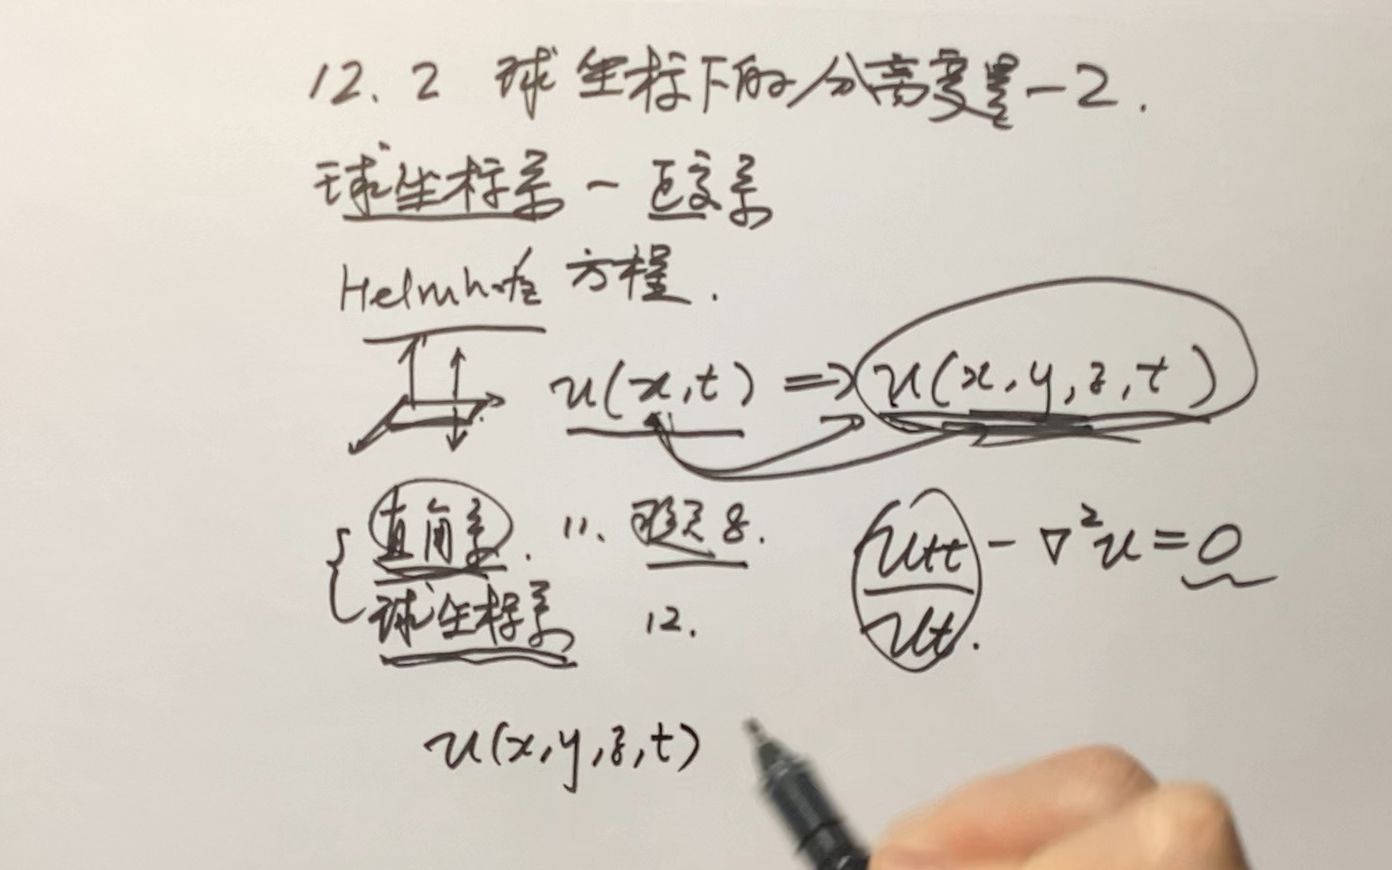 12.2 球坐标下的分离变量-2.
球坐标系 - 正交系
Helmholtz 方程.
u(x,t) ⇒ u(x,y,z,t)
{ 直角系. 11. 8.
球坐标系 12.
utt - ∇²u = 0
ut.
u(x,y,z,t)